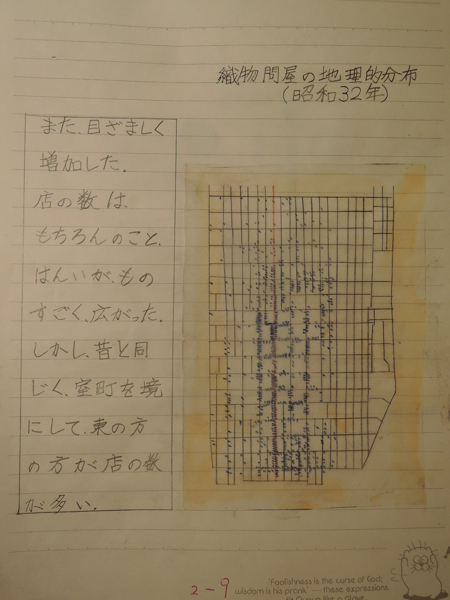 織物問屋の地理的分布
(昭和32年)
また、目ざましく
増加した。
店の数は、
もちろんのこと、
はんいが、もの
すごく、広がった。
しかし、昔と同
じく、室町を境
にして、東の方
の方が店の数
が多い。
2-9
'Foolishness is the curse of God;
wisdom is his prank' — these expressions